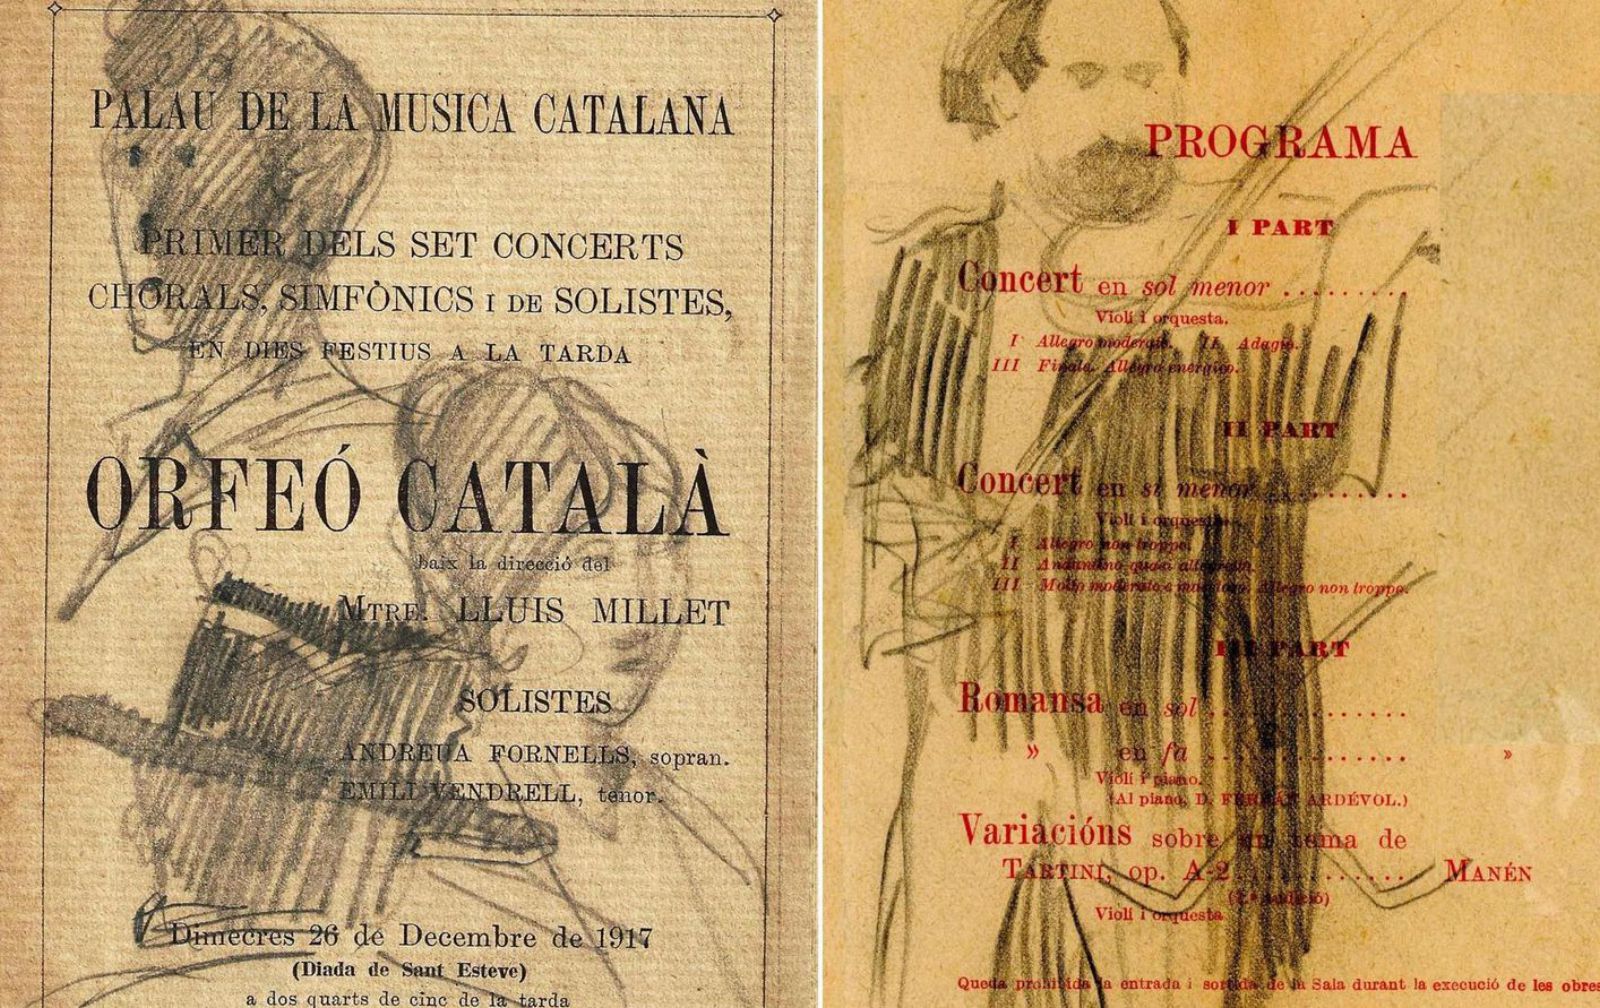 PALAU DE LA MUSICA CATALANA
PRIMER DELS SET CONCERTS
CHORALS, SIMFÒNICS I DE SOLISTES,
EN DIES FESTIUS A LA TARDA
ORFEÓ CATALÀ
baix la direcció del
MTRE. LLUIS MILLET
SOLISTES
ANDREUA FORNELLS, sopran.
EMILI VENDRELL, tenor.
Dimecres 26 de Decembre de 1917
(Diada de Sant Esteve)
a dos quarts de cinc de la tarda
PROGRAMA
I PART
Concert en sol menor .........
Violí i orquesta.
I Allegro moderato. II Adagio.
III Finale. Allegro energico.
II PART
Concert en si menor ..........
Violí i orquesta.
I Allegro non troppo.
II Andantino quasi allegretto.
III Molto moderato e maestoso. Allegro non troppo.
III PART
Romansa en sol ...............
» en fa ............... »
Violí i piano.
(Al piano, D. FERRÁN ARDÉVOL.)
Variacións sobre un tema de
TARTINI, op. A-2 ............ MANÉN
audició)
Violí i orquesta
Queda prohibida la entrada i sortida de la Sala durant la execució de les obres